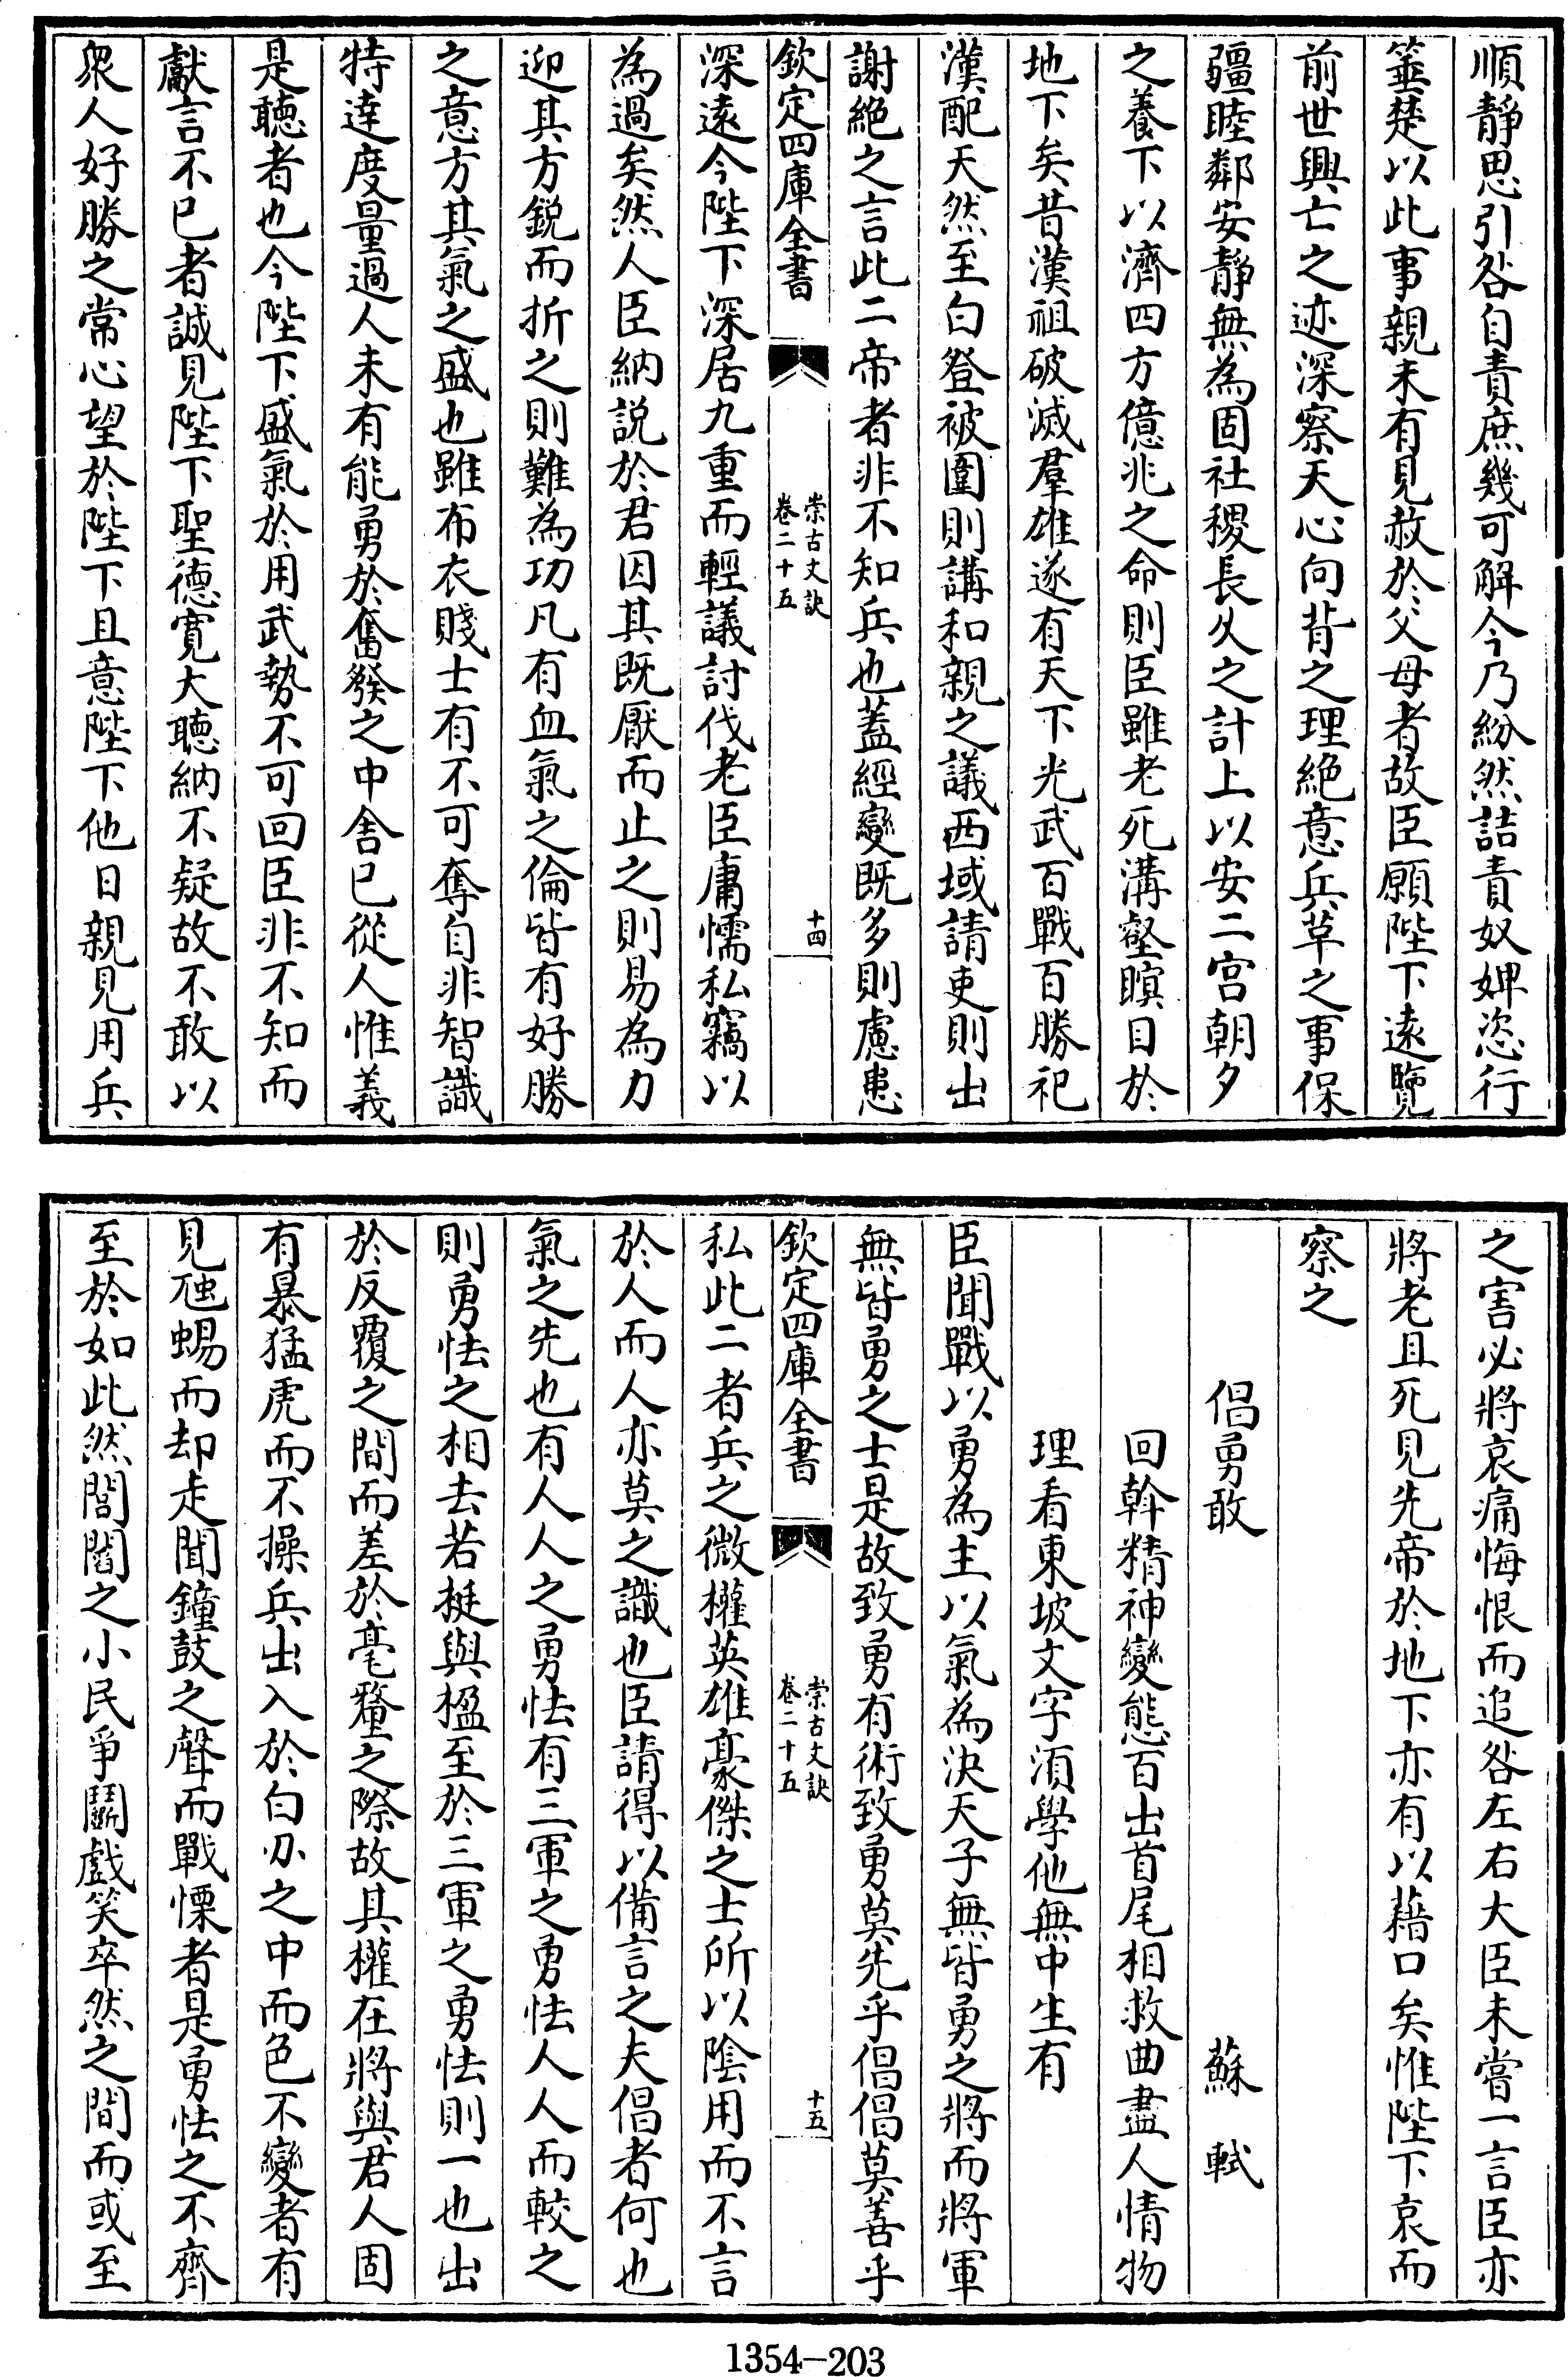 順靜思引咎自責庶幾可解今乃紛然詰責奴婢恣行
箠楚以此事親未有見赦於父母者故臣願陛下遠覽
前世興亡之迹深察天心向背之理絶意兵革之事保
疆睦鄰安靜無為固社稷長久之計上以安二宫朝夕
之養下以濟四方億兆之命則臣雖老死溝壑瞑目於
地下矣昔漢祖破滅羣雄遂有天下光武百戰百勝祀
漢配天然至白登被圍則講和親之議西域請吏則出
謝絶之言此二帝者非不知兵也蓋經變既多則慮患
欽定四庫全書
崇古文訣
卷二十五
十四
深遠今陛下深居九重而輕議討伐老臣庸懦私竊以
為過矣然人臣納説於君因其既厭而止之則易為力
迎其方鋭而折之則難為功凡有血氣之倫皆有好勝
之意方其氣之盛也雖布衣賤士有不可奪自非智識
特達度量過人未有能勇於奮發之中舍已從人惟義
是聽者也今陛下盛氣於用武勢不可回臣非不知而
獻言不已者誠見陛下聖德寛大聽納不疑故不敢以
衆人好勝之常心望於陛下且意陛下他日親見用兵
之害必將哀痛悔恨而追咎左右大臣未嘗一言臣亦
將老且死見先帝於地下亦有以藉口矣惟陛下哀而
察之
倡勇敢 蘇軾
回斡精神變態百出首尾相救曲盡人情物
理看東坡文字須學他無中生有
臣聞戰以勇為主以氣為決天子無皆勇之將而將軍
無皆勇之士是故致勇有術致勇莫先乎倡倡莫善乎
欽定四庫全書
崇古文訣
卷二十五
十五
私此二者兵之微權英雄豪傑之士所以陰用而不言
於人而人亦莫之識也臣請得以備言之夫倡者何也
氣之先也有人人之勇怯有三軍之勇怯人人而較之
則勇怯之相去若梃與楹至於三軍之勇怯則一也出
於反覆之間而差於毫釐之際故其權在將與君人固
有暴猛虎而不操兵出入於白刃之中而色不變者有
見虺蜴而却走聞鐘鼓之聲而戰慄者是勇怯之不齊
至於如此然閭閻之小民爭鬭戲笑卒然之間而或至
1354-203